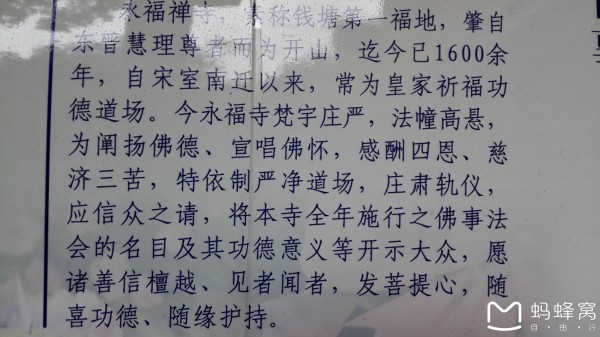 永福禅寺，素称钱塘第一福地，肇自
东晋慧理尊者而为开山，迄今已1600余
年，自宋室南迁以来，常为皇家祈福功
德道场。今永福寺梵宇庄严，法幢高悬，
为阐扬佛德、宣唱佛怀，感酬四恩、慈
济三苦，特依制严净道场，庄肃轨仪，
应信众之请，将本寺全年施行之佛事法
会的名目及其功德意义等开示大众，愿
诸善信檀越、见者闻者，发菩提心，随
喜功德、随缘护持。
蚂蜂窝
自由行